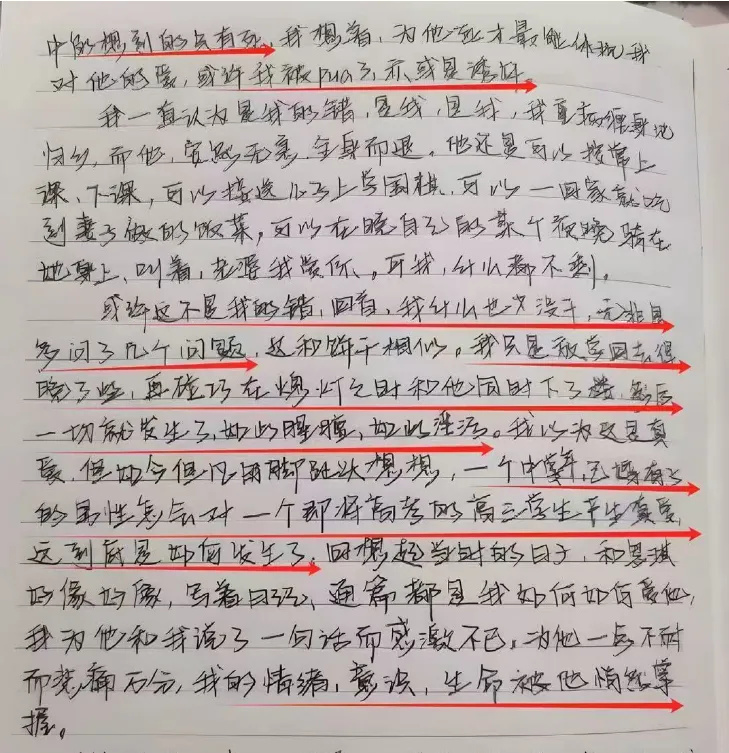 中的想到的只有死,我想着,为他死才最能体现我
对他的爱,或许我被pua了,亦或是诱奸。
我一直认为是我的错,是我,是我,我重病缠身地
归乡,而他,安然无恙,全身而退。他还是可以按常上
课、下课,可以接送儿子上学围棋,可以一回家就吃
到妻子做的饭菜,可以在晚自习的某个夜晚骑在
她身上,叫着,老婆我爱你,可我,什么都不剩。
或许这不是我的错,回首,我什么也没干,无非是
多问了几个问题,这和饼干相似。我只是放学回去得
晚了些,再碰巧在熄灯之时和他同时下了楼,然后
一切就发生了,如此腥膻,如此淫污。我以为这是真
爱,但如今但凡用脚趾头想想,一个中年,已婚有子
的男性怎会对一个即将高考的高三学生产生真爱,
这到底是如何发生了,回想起当时的日子,和思琪
好像好像,写着日记,通篇都是我如何如何爱他,
我为他和我说了一句话而感激不已,为他一点不耐
而悲痛万分,我的情绪,意识,生命被他悄然掌
握。